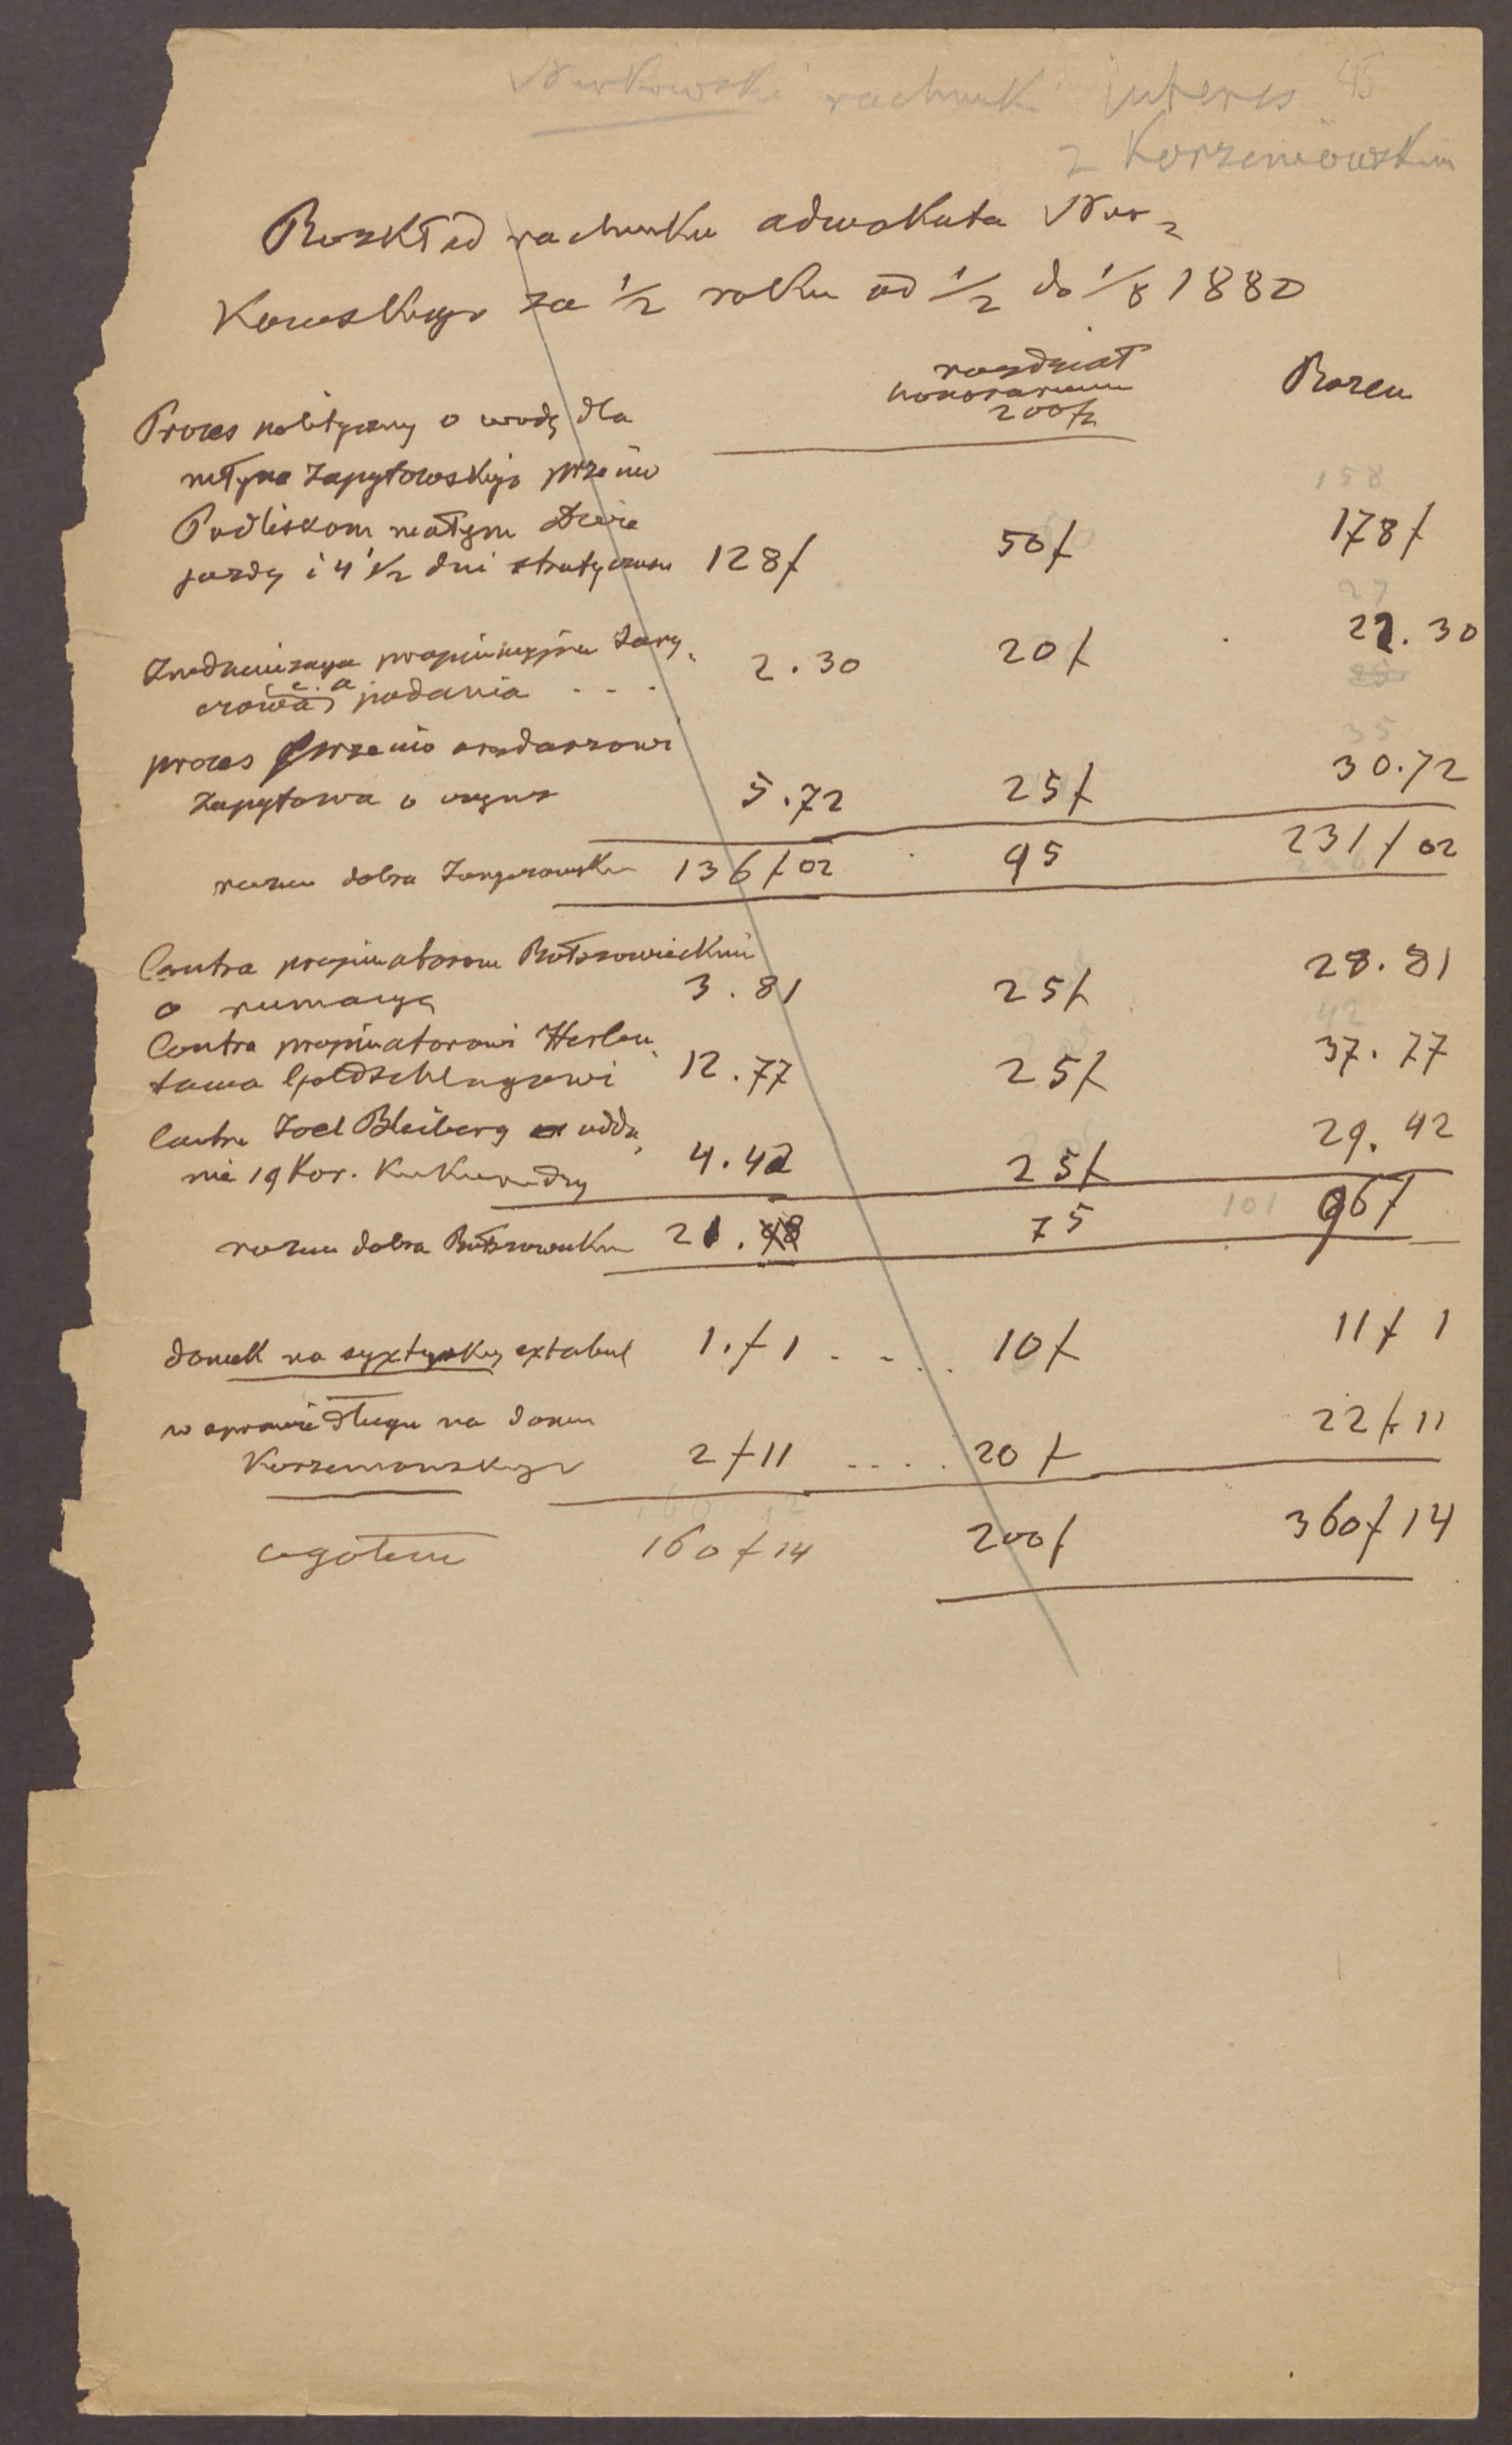 rachunki interes 45
z Korzeniowskim
Rozkład rachunku adwokata Nur-
kowskiego za 1/2 roku od 1/2 do 1/8 1880
rozdział
honorarium
200f
Razem
Proces polityczny o wodę dla
młyna Zapytowskiego przeciw
158
Podliskom młynu dwie
jazdy i 4 1/2 dni straty czasu 128f 50f 178f
27
propinacyjna
podania . . . 2.30 20f 22.30
35
proces przeciw arendarzowi
Zapytowa o czynsz 5.72 25f 30.72
razem dobra 136f02 95 231f02
Contra propinatorom Bołszowieckim
o rumacyę 3.81 25f 28.81
42
Contra propinatorowi Herbu-
towa Goldschlagowi 12.77 25f 37.77
Contra Joel Bleiberg oddа-
nie 19 Kor. Kukurudzy 4.42 25f 29.42
razem dobra Bołszowieckie 21. 75 101 96f
domek na syxtuskiej extabul 1.f1 . . . . 10f 11f1
w sprawie długu na domu
Korzeniowskiego 2f11 . . . . 20f 22f11
ogółem 160f14 200f 360f14